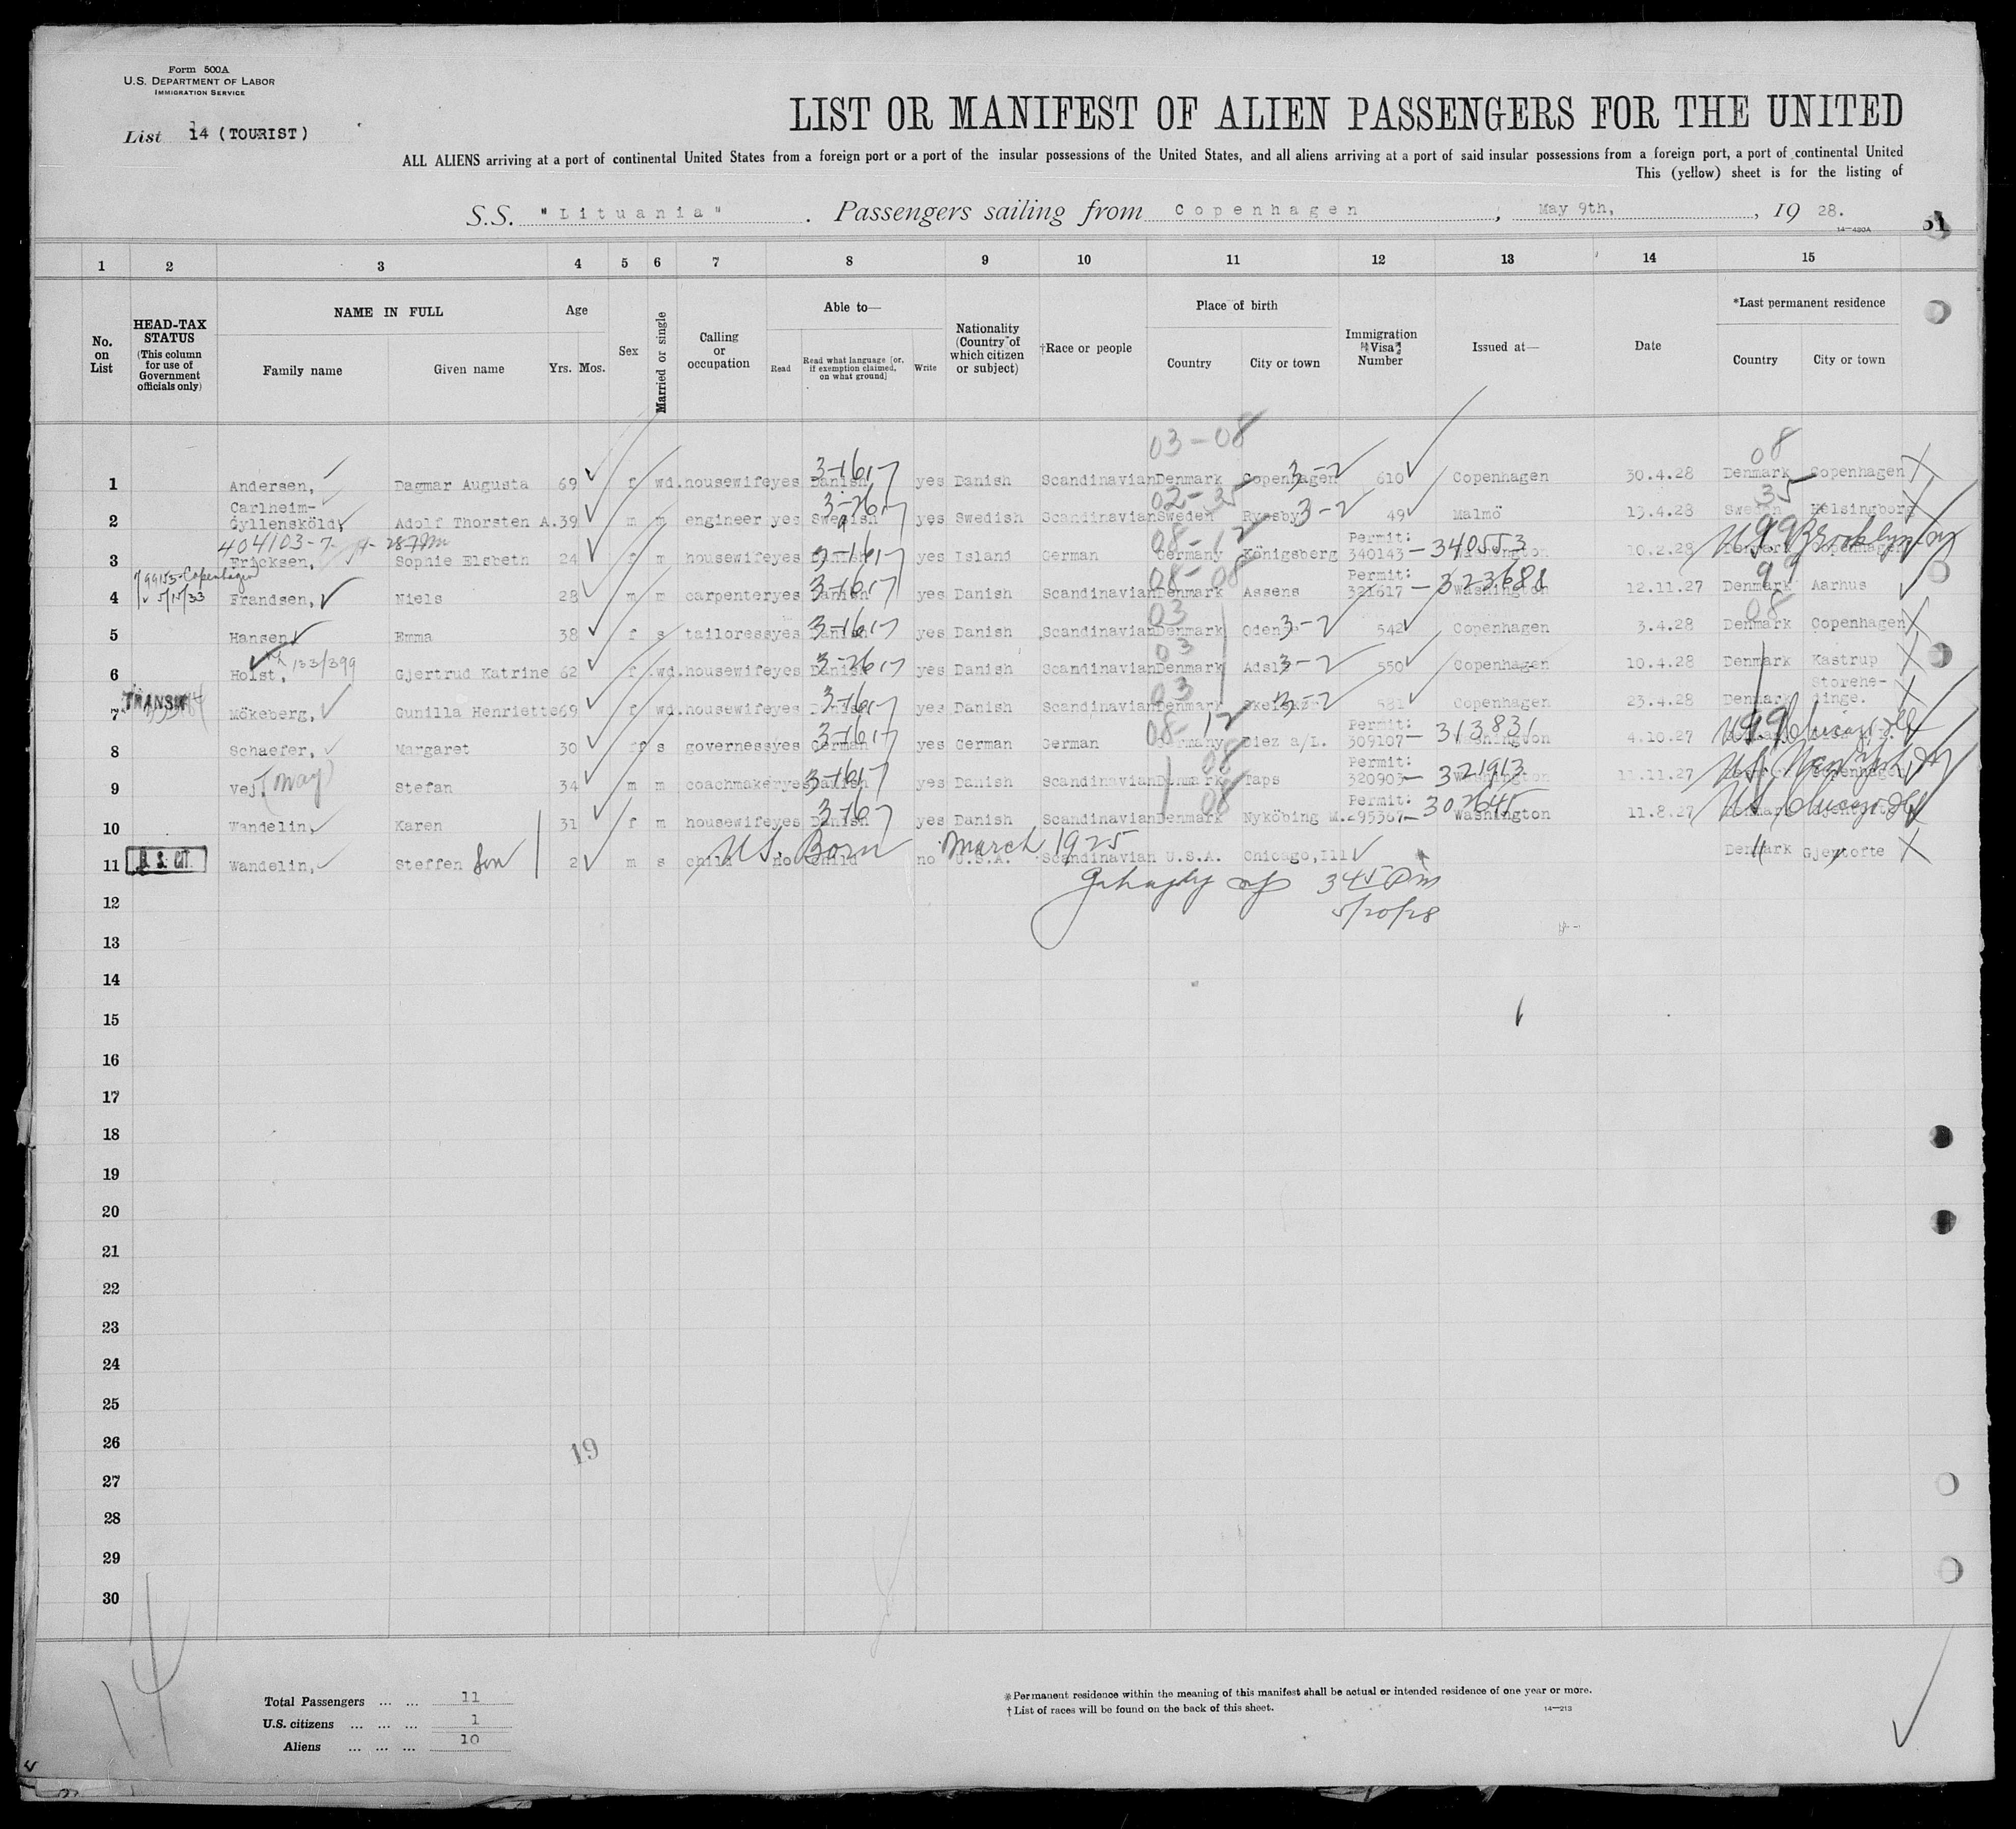 Form 500A
U.S. DEPARTMENT OF LABOR
IMMIGRATION SERVICE
List 14 (TOURIST)
LIST OR MANIFEST OF ALIEN PASSENGERS FOR THE UNITED
ALL ALIENS arriving at a port of continental United States from a foreign port or a port of the insular possessions of the United States, and all aliens arriving at a port of said insular possessions from a foreign port, a port of continental United
This (yellow) sheet is for the listing of
S.S. "Lituania" . Passengers sailing from Copenhagen , May 9th, , 19 28.
14—430A
1 2 3 4 5 6 7 8 9 10 11 12 13 14 15
No. on List
HEAD-TAX STATUS (This column for use of Government officials only)
NAME IN FULL
Family name Given name
Age
Yrs. Mos.
Sex
Married or single
Calling or occupation
Able to—
Read
Read what language [or, if exemption claimed, on what ground]
Write
Nationality (Country of which citizen or subject)
†Race or people
Place of birth
Country City or town
Immigration Visa Number
Issued at—
Date
*Last permanent residence
Country City or town
03-08 08
1 Andersen, Dagmar Augusta 69 f wd. housewife yes Danish 3-16-17 yes Danish Scandinavian Denmark Copenhagen 3-2 610 Copenhagen 30.4.28 Denmark Copenhagen X
02-35 35
2 Carlheim-Gyllensköld, Adolf Thorsten A. 39 m m engineer yes Swedish yes Swedish Scandinavian Sweden 3-2 49 Malmö 13.4.28 Sweden Helsingborg
404103-7
3 Ericksen, Sophie Elsbeth 24 f m housewife yes yes Island German Germany Königsberg Permit: 340143 — 340553 Washington 10.2.28 Copenhagen US Brooklyn
99153-Copenhagen 5/15/33
4 Frandsen, Niels 28 m m carpenter yes Danish yes Danish Scandinavian Denmark Assens Permit: 321617 — 323688 Washington 12.11.27 Denmark Aarhus
5 Hansen, Emma 38 f s tailoress yes Danish yes Danish Scandinavian Denmark 3-2 542 Copenhagen 3.4.28 Denmark Copenhagen X
133/399
6 Holst, Gjertrud Katrine 62 f wd. housewife yes Danish yes Danish Scandinavian Denmark 3-2 550 Copenhagen 10.4.28 Denmark Kastrup X
TRANSIT
7 Mökeberg, Gunilla Henriette 69 f wd. housewife yes Danish yes Danish Scandinavian Denmark 3-2 581 Copenhagen 23.4.28 Denmark Storehe-dinge. X
8 Schaefer, Margaret 30 f s governess yes German yes German German Germany Diez a/L. Permit: 309107 — 313831 Washington 4.10.27 US Chicago Ill
9 Vej, (May) Stefan 34 m m coachmaker yes Danish yes Danish Scandinavian Denmark Taps Permit: 320903 — 321913 Washington 11.11.27 Copenhagen US New York
10 Wandelin, Karen 31 f m housewife yes Danish yes Danish Scandinavian Denmark Nyköbing M. Permit: 295367 — 302645 Washington 11.8.27 US Chicago Ill
US. Born March 1925
11 U.S. CIT. Wandelin, Steffen Son 2 m s child no child no U.S.A. Scandinavian U.S.A. Chicago, Ill Denmark Gjentofte X
345 Pm
5/20/28
12
13
14
15
16
17
18
19
20
21
22
23
24
25
26
19
27
28
29
30
14
Total Passengers ... ... 11
U.S. citizens ... ... ... 1
Aliens ... ... ... 10
*Permanent residence within the meaning of this manifest shall be actual or intended residence of one year or more.
†List of races will be found on the back of this sheet.
14—213